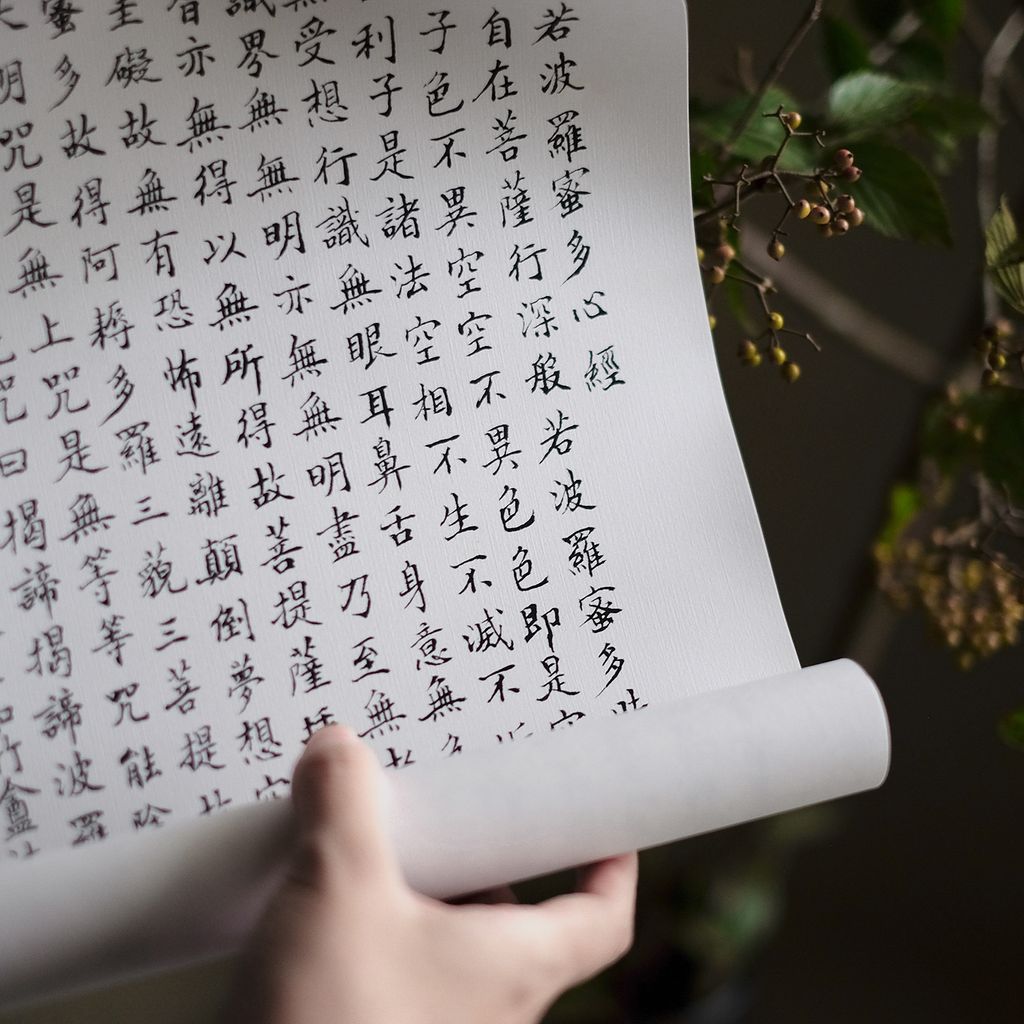 若波羅蜜多心經
自在菩薩行深般若波羅蜜多時
子色不異空空不異色色即是空
利子是諸法空相不生不滅不
無受想行識無眼耳鼻舌身意無色
識界無無明亦無無明盡乃至無
智亦無得以無所得故菩提薩埵
罣礙故無有恐怖遠離顛倒夢想究
蜜多故得阿耨多羅三藐三菩提故
大明咒是無上咒是無等等咒能除
咒曰揭諦揭諦波羅
竹盦